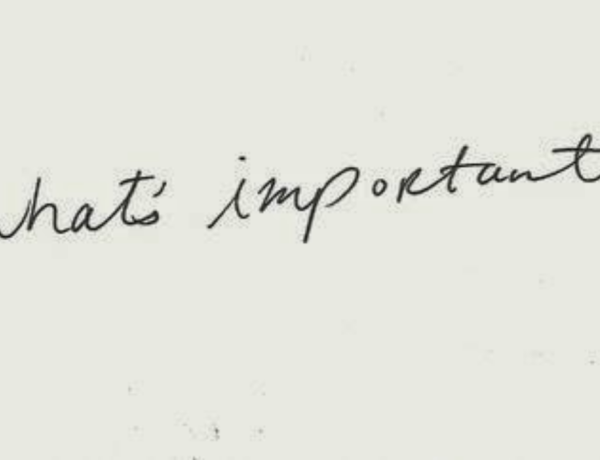 what's important